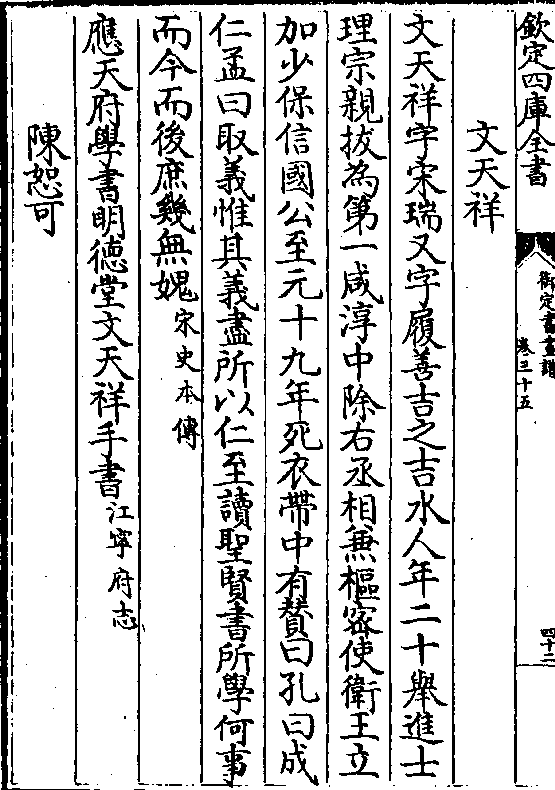 欽定四庫全書
御定書畫譜
卷三十五
四十二
文天祥
文天祥字宋瑞又字履善吉之吉水人年二十舉進士
理宗親拔為第一咸淳中除右丞相兼樞密使衛王立
加少保信國公至元十九年死衣帶中有贊曰孔曰成
仁孟曰取義惟其義盡所以仁至讀聖賢書所學何事
而今而後庶幾無媿宋史本傳
應天府學書明德堂文天祥手書江寧府志
陳恕可